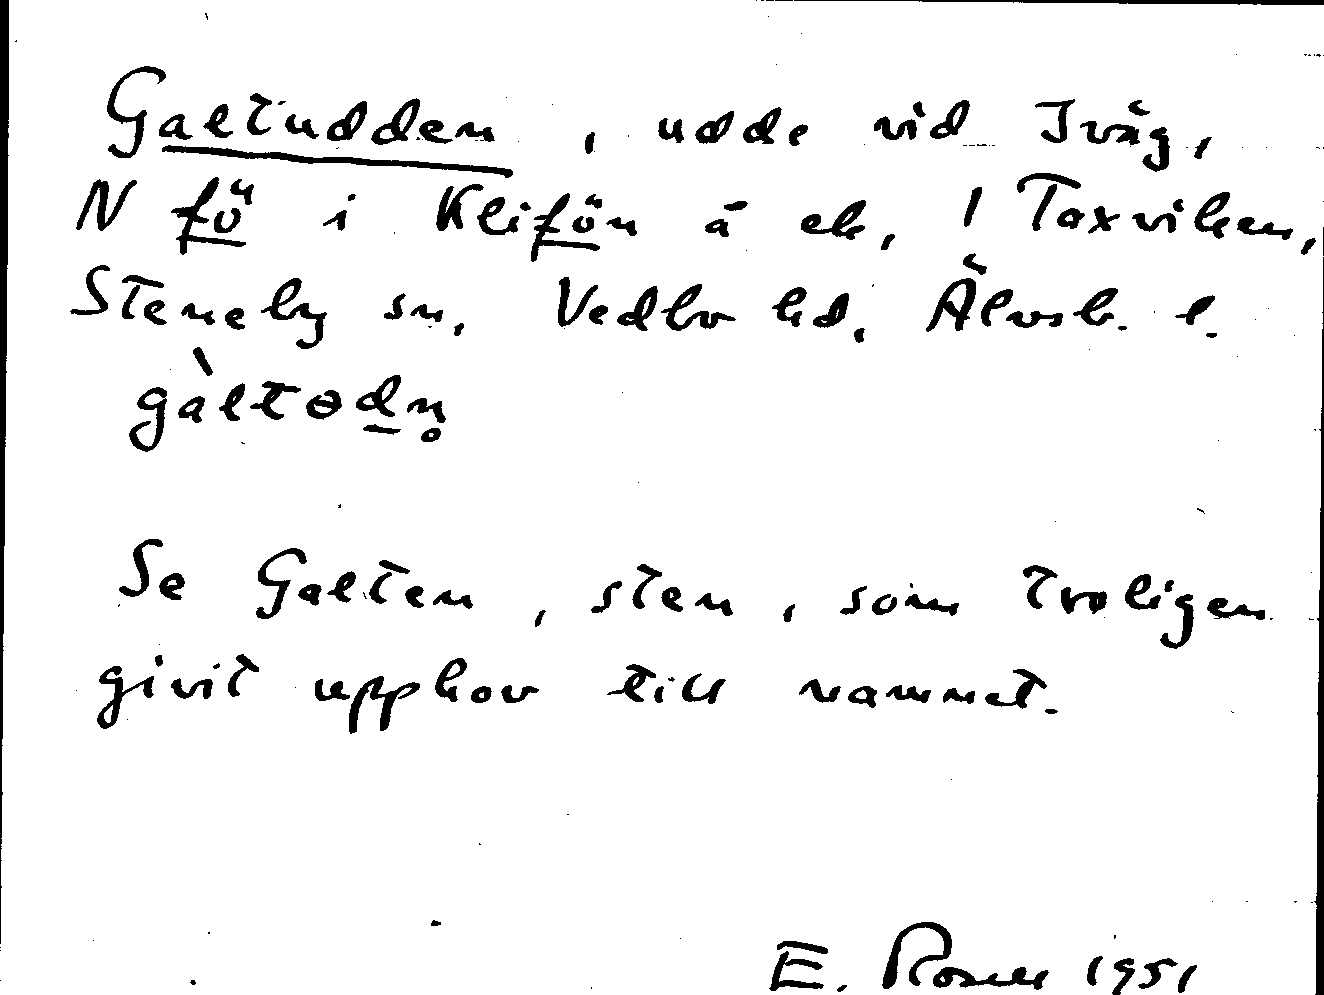 Galtudden, udde vid Iväg,
N fö i Kliffön å ek, 1 Taxviken,
Steneby sn, Vedbo hd, Älvsb. l.
gàltɵdn̥
Se Galten, sten, som troligen
givit upphov till namnet.
E. 1951